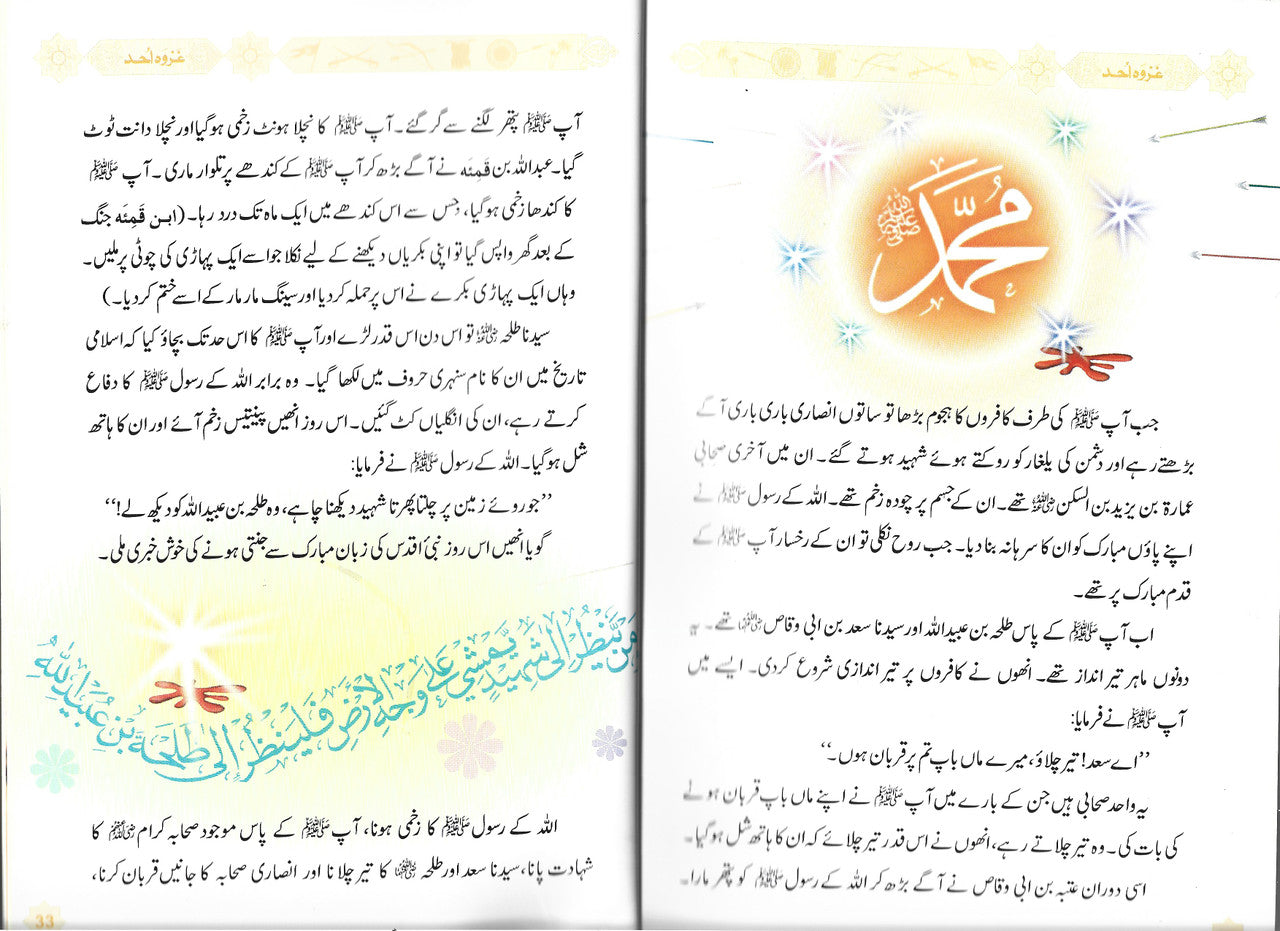 غزوہ اُحد
محمد ﷺ
جب آپ ﷺ کی طرف کافروں کا ہجوم بڑھا تو ساتوں انصاری باری باری آگے
بڑھتے رہے اور دشمن کی یلغار کو روکتے ہوئے شہید ہوتے گئے۔ ان میں آخری صحابی
عمارۃ بن یزید بن السکن رضی اللہ عنہ تھے۔ ان کے جسم پر چودہ زخم تھے۔ اللہ کے رسول ﷺ نے
اپنے پاؤں مبارک کو ان کا سرہانہ بنا دیا۔ جب روح نکلی تو ان کے رخسار آپ ﷺ کے
قدم مبارک پر تھے۔
اب آپ ﷺ کے پاس طلحہ بن عبید اللہ اور سیدنا سعد بن ابی وقاص رضی اللہ عنہما تھے۔ یہ
دونوں ماہر تیر انداز تھے۔ انھوں نے کافروں پر تیر اندازی شروع کر دی۔ ایسے میں
آپ ﷺ نے فرمایا:
’’اے سعد! تیر چلاؤ، میرے ماں باپ تم پر قربان ہوں۔‘‘
یہ واحد صحابی ہیں جن کے بارے میں آپ ﷺ نے اپنے ماں باپ قربان ہونے
کی بات کی۔ وہ تیر چلاتے رہے، انھوں نے اس قدر تیر چلائے کہ ان کا ہاتھ شل ہو گیا۔
اسی دوران عتبہ بن ابی وقاص نے آگے بڑھ کر اللہ کے رسول ﷺ کو پتھر مارا۔
غزوہ اُحد
آپ ﷺ پتھر لگنے سے گر گئے۔ آپ ﷺ کا نچلا ہونٹ زخمی ہو گیا اور نچلا دانت ٹوٹ
گیا۔ عبداللہ بن قَمِئَه نے آگے بڑھ کر آپ ﷺ کے کندھے پر تلوار ماری۔ آپ ﷺ
کا کندھا زخمی ہو گیا، جس سے اس کندھے میں ایک ماہ تک درد رہا۔ (ابن قَمِئَه جنگ
کے بعد گھر واپس گیا تو اپنی بکریاں دیکھنے کے لیے نکلا جو اسے ایک پہاڑی کی چوٹی پر ملیں۔
وہاں ایک پہاڑی بکرے نے اس پر حملہ کر دیا اور سینگ مار مار کے اسے ختم کر دیا۔)
سیدنا طلحہ رضی اللہ عنہ تو اس دن اس قدر لڑے اور آپ ﷺ کا اس حد تک بچاؤ کیا کہ اسلامی
تاریخ میں ان کا نام سنہری حروف میں لکھا گیا۔ وہ برابر اللہ کے رسول ﷺ کا دفاع
کرتے رہے، ان کی انگلیاں کٹ گئیں۔ اس روز انھیں پینتیس زخم آئے اور ان کا ہاتھ
شل ہو گیا۔ اللہ کے رسول ﷺ نے فرمایا:
’’جو روئے زمین پر چلتا پھرتا شہید دیکھنا چاہے، وہ طلحہ بن عبید اللہ کو دیکھ لے!‘‘
گویا انھیں اس روز نبیٔ اقدس کی زبان مبارک سے جنتی ہونے کی خوش خبری ملی۔
مَن يَّنظُرْ إِلى شَهِيدٍ يَّمْشِي عَلى وَجْهِ الأَرْضِ فَليَنظُرْ إِلى طَلحَةَ بْنِ عُبَيدِ اللهِ
اللہ کے رسول ﷺ کا زخمی ہونا، آپ ﷺ کے پاس موجود صحابہ کرام رضی اللہ عنہم کا
شہادت پانا، سیدنا سعد اور طلحہ رضی اللہ عنہما کا تیر چلانا اور انصاری صحابہ کا جانیں قربان کرنا،
33